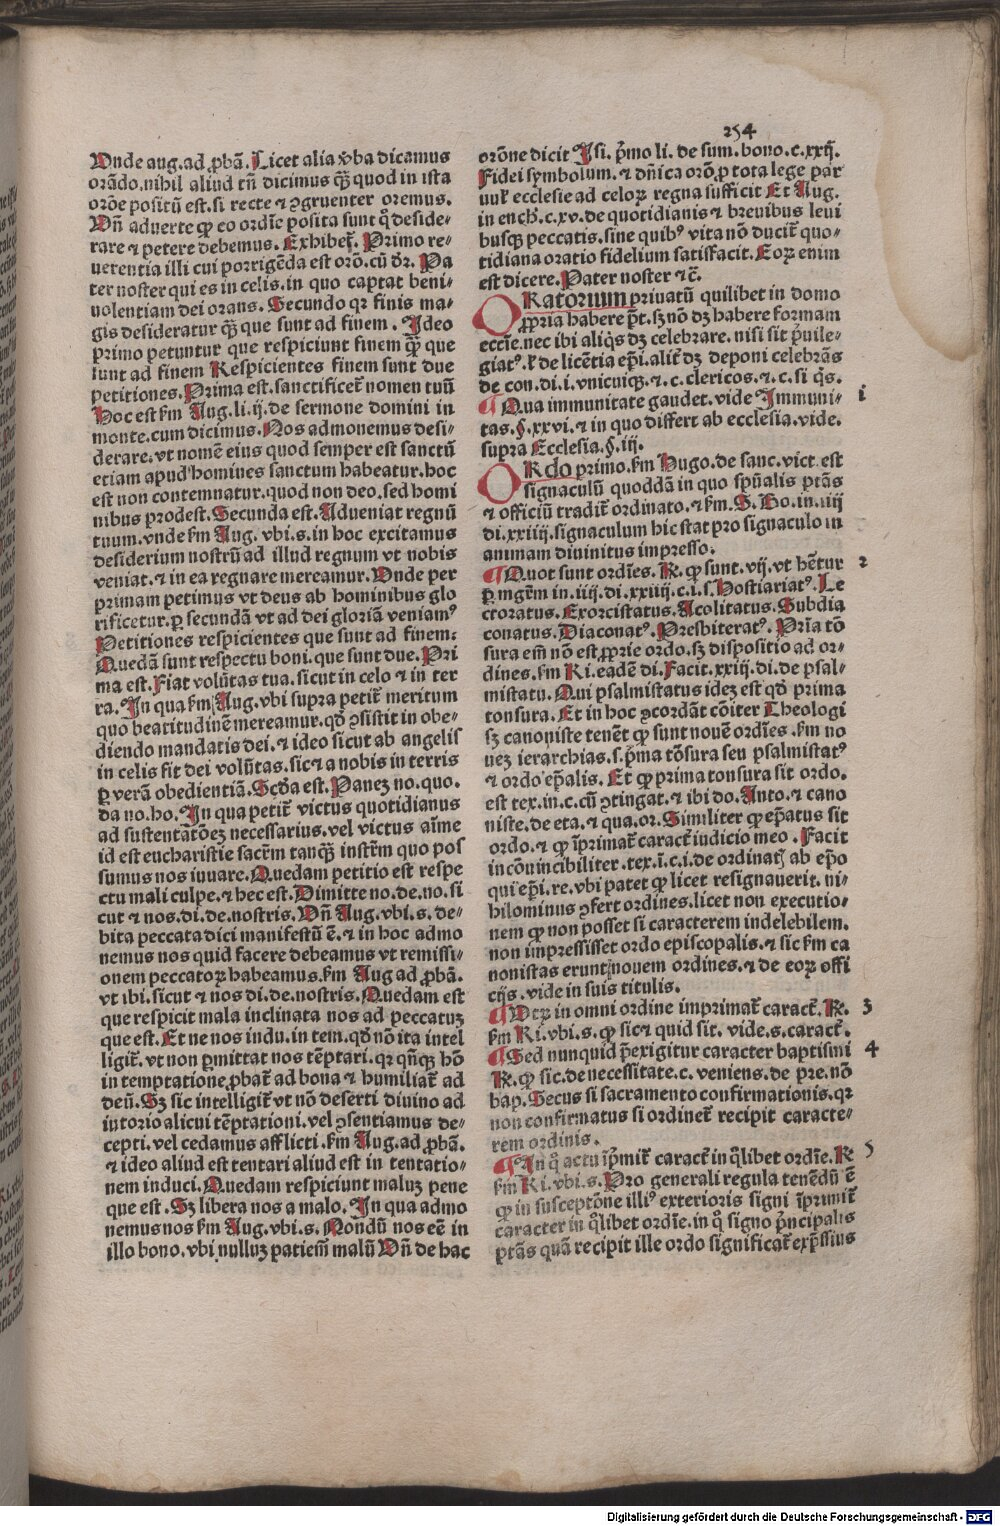 254
Unde aug. ad ꝓbā. Licet alia v̓ba dicamus
orādo. nihil aliud tn̄ dicimus qꝫ̄ quod in ista
orōe positū est. si recte ⁊ ꝯgruenter oremus.
Un̄ aduerte ꝙ eo ordīe posita sunt q̄ deside⸗
rare ⁊ petere debemus. Exhibet̄. Primo re⸗
uerentia illi cui porrigēda est orō. cū dr̄. Pa
ter noster qui es in celis. in quo captat beni⸗
uolentiam dei orans. Secundo qr finis ma⸗
gis desideratur qꝫ̄ que sunt ad finem. Ideo
primo petuntur que respiciunt finem qꝫ̄ que
sunt ad finem Respicientes finem sunt due
petitiones. Prima est. sanctificet̄ nomen tuū
Hoc est ẜm Aug. li. ij. de sermone domini in
monte. cum dicimus. Nos admonemus desi⸗
derare. vt nomē eius quod semper est sanctū
etiam apud homines sanctum habeatur. hoc
est non contemnatur. quod non deo. sed homi
nibus prodest. Secunda est. Adueniat regnū
tuum. vnde ẜm Aug. vbi. s. in hoc excitamus
desiderium nostrū ad illud regnum vt nobis
veniat. ⁊ in ea regnare mereamur. Unde per
primam petimus vt deus ab hominibus glo
rificetur. ꝑ secundā vt ad dei gloriā veniamꝰ
Petitiones respicientes que sunt ad finem:
Quedā sunt respectu boni. que sunt due. Pri
ma est. Fiat volūtas tua. sicut in celo ⁊ in ter
ra. In qua ẜm Aug. vbi supra petit̄ meritum
quo beatitudinē mereamur. qd̓ ꝯsistit in obe⸗
diendo mandatis dei. ⁊ ideo sicut ab angelis
in celis fit dei volūtas. sic ⁊ a nobis in terris
ꝑ verā obedientiā. Scd̓a est. Panez no. quo.
da no. ho. In qua petit̄ victus quotidianus
ad sustentatōez necessarius. vel victus aīme
id est eucharistie sacr̄m tanqꝫ̄ instr̄m quo pos
sumus nos iuuare. Quedam petitio est respe
ctu mali culpe. ⁊ hec est. Dimitte no. de. no. si
cut ⁊ nos. di. de. nostris. Un̄ Aug. vbi. s. de⸗
bita peccata dici manifestū ē. ⁊ in hoc admo
nemus nos quid facere debeamus vt remissi⸗
onem peccatoꝝ habeamus. ẜm Aug ad ꝓbā.
vt ibi. sicut ⁊ nos di. de. nostris. Quedam est
que respicit mala inclinata nos ad peccatuꝫ
que est. Et ne nos indu. in tem. qd̓ nō ita intel
ligit̄. vt non ꝑmittat nos tēptari. qr qn̄qꝫ hō
in temptatione ꝓbat̄ ad bona ⁊ humiliat̄ ad
deū. Sꝫ sic intelligit̄ vt nō deserti diuino ad
iutorio alicui tēptationi. vel ꝯsentiamus de⸗
cepti. vel cedamus afflicti. ẜm Aug. ad ꝓbā.
⁊ ideo aliud est tentari aliud est in tentatio⸗
nem induci. Quedam respiciunt maluꝫ pene
que est. Sꝫ libera nos a malo. In qua admo
nemus nos ẜm Aug. vbi. s. Nondū nos eē in
illo bono. vbi nulluꝫ patiem̄ malū Un̄ de hac
orōne dicit Isi. p̄mo li. de sum. bono. c. xxij.
Fidei symbolum. ⁊ dn̄ica orō. ꝑ tota lege par
uuł ecclesie ad celoꝝ regna sufficit Et Aug.
in ench̄. c. xv. de quotidianis ⁊ breuibus leui
busqꝫ peccatis. sine quibꝰ vita nō ducit̄ quo⸗
tidiana oratio fidelium satisfacit. Eoꝝ enim
est dicere. Pater noster ⁊ c̄.
ORatorium priuatū quilibet in domo
ꝓpria habere pt̄. sꝫ nō dꝫ habere formam
eccīe. nec ibi aliq̄s dꝫ celebrare. nisi sit p̄uile⸗
giatꝰ. ł de licētia epī. alit̄ dꝫ deponi celebrās
de con. di. i. vnicuiqꝫ. ⁊. c. clericos. ⁊. c. si q̄s.
¶ Qua immunitate gaudet. vide Immuni⸗ i
tas. §. xxvi. ⁊ in quo differt ab ecclesia. vide.
supra Ecclesia. §. iij.
ORdo primo. ẜm Hugo. de sanc. vict. est
signaculū quoddā in quo spūalis ptās
⁊ officiū tradit̄ ordinato. ⁊ ẜm. S. Bo. in. iiij
di. xxiiij. signaculum hic stat pro signaculo in
animam diuinitus impresso.
¶ Quot sunt ordīes. ℞. ꝙ sunt. vij. vt hētur 2
ꝑ mgr̄m in. iiij. di. xxiiij. c. i. s. Hostiariatꝰ. Le
ctoratus. Exorcistatus. Acolitatus. Subdia
conatus. Diaconatꝰ. Presbiteratꝰ. Prīa tō
sura em̄ nō est ꝓprie ordo. sꝫ dispositio ad or⸗
dines. ẜm Ri. eadē di. Facit. xxiij. di. de psal⸗
mistatu. Qui psalmistatus idez est qd̓ prima
tonsura. Et in hoc ꝯcordāt cōiter Theologi
sꝫ canoniste tenēt ꝙ sunt nouē ordīes. ẜm no
uez ierarchias. s. p̄ma tōsura seu psalmistatꝰ
⁊ ordo ep̄alis. Et ꝙ prima tonsura sit ordo.
est tex. in. c. cū ꝯtingat. ⁊ ibi do. Anto. ⁊ cano
niste. de eta. ⁊ qua. or. Similiter ꝙ ep̄atus sit
ordo. ⁊ ꝙ īprimat̄ caract̄ iudicio meo. Facit
incōuincibiliter. tex. ī. c. i. de ordinatꝭ ab ep̄o
qui ep̄i. re. vbi patet ꝙ licet resignauerit. ni⸗
hilominus ꝯfert ordines. licet non executio⸗
nem ꝙ non posset si caracterem indelebilem.
non impressisset ordo episcopalis. ⁊ sic ẜm ca
nonistas erunt nouem ordines. ⁊ de eoꝝ offi
cijs. vide in suis titulis.
¶ Utꝝ in omni ordine imprimat̄ caract̄. ℞. 3
ẜm Ri. vbi. s. ꝙ sic ⁊ quid sit. vide. s. caract̄.
¶ Sed nunquid p̄exigitur caracter baptismi 4
℞. ꝙ sic. de necessitate. c. veniens. de pre. nō
bap. Secus si sacramento confirmationis. qr
non confirmatus si ordinet̄ recipit caracte⸗
rem ordinis.
¶ In q̄ actu īp̄mit̄ caract̄ in q̄libet ordīe. ℞ 5
ẜm Ri. vbi. s. Pro generali regula tenēdū ē
ꝙ in susceptōne illiꝰ exterioris signi īprimit̄
caracter in q̄libet ordīe. in q̄ signo p̄ncipalis
ptās quā recipit ille ordo significat̄ exp̄ssius
Digitalisierung gefördert durch die Deutsche Forschungsgemeinschaft - DFG